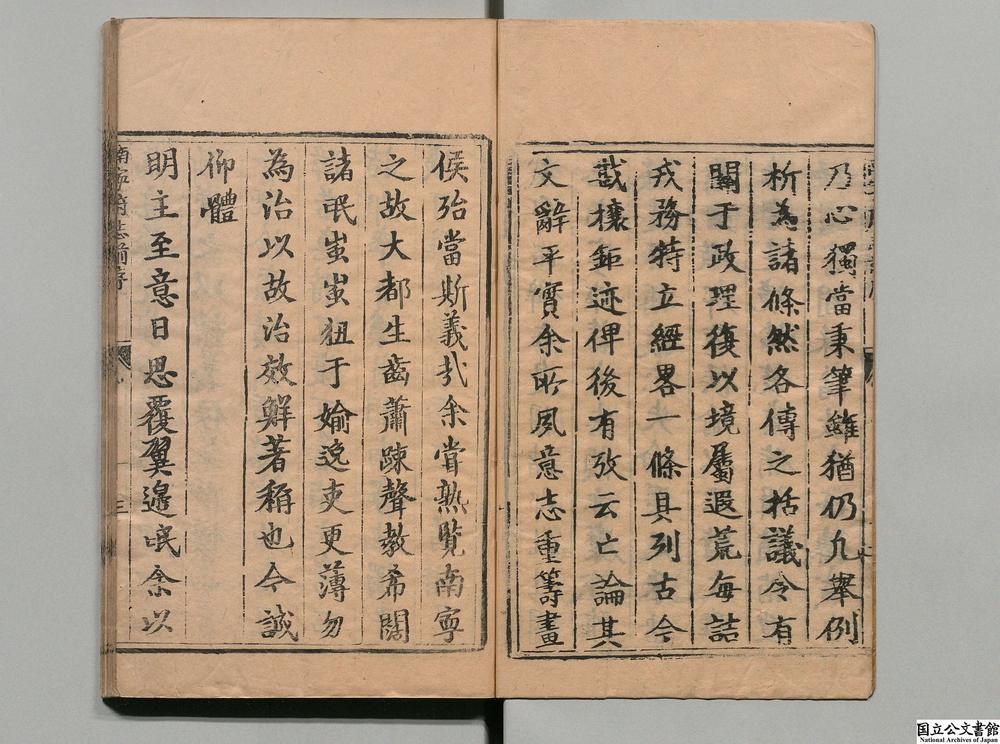 乃心獨當秉筆雖猶仍九舉例
析為諸條然各傳之括議令有
關于政理復以境屬遐荒每詰
戎務特立經畧一條具列古今
戡攘鉅迹俾後有攷云亡論其
文辭平實余所夙意志重籌畫
侯殆當斯義哉余嘗熟覧南寧
之故大都生齒蕭踈聲教希闊
諸氓蚩蚩狃于媮逸吏更薄勿
為治以故治效鮮著稱也今誠
仰體
明主至意日思覆翼邉氓余以
南寧府志前序
三
国立公文書館
National Archives of Japan